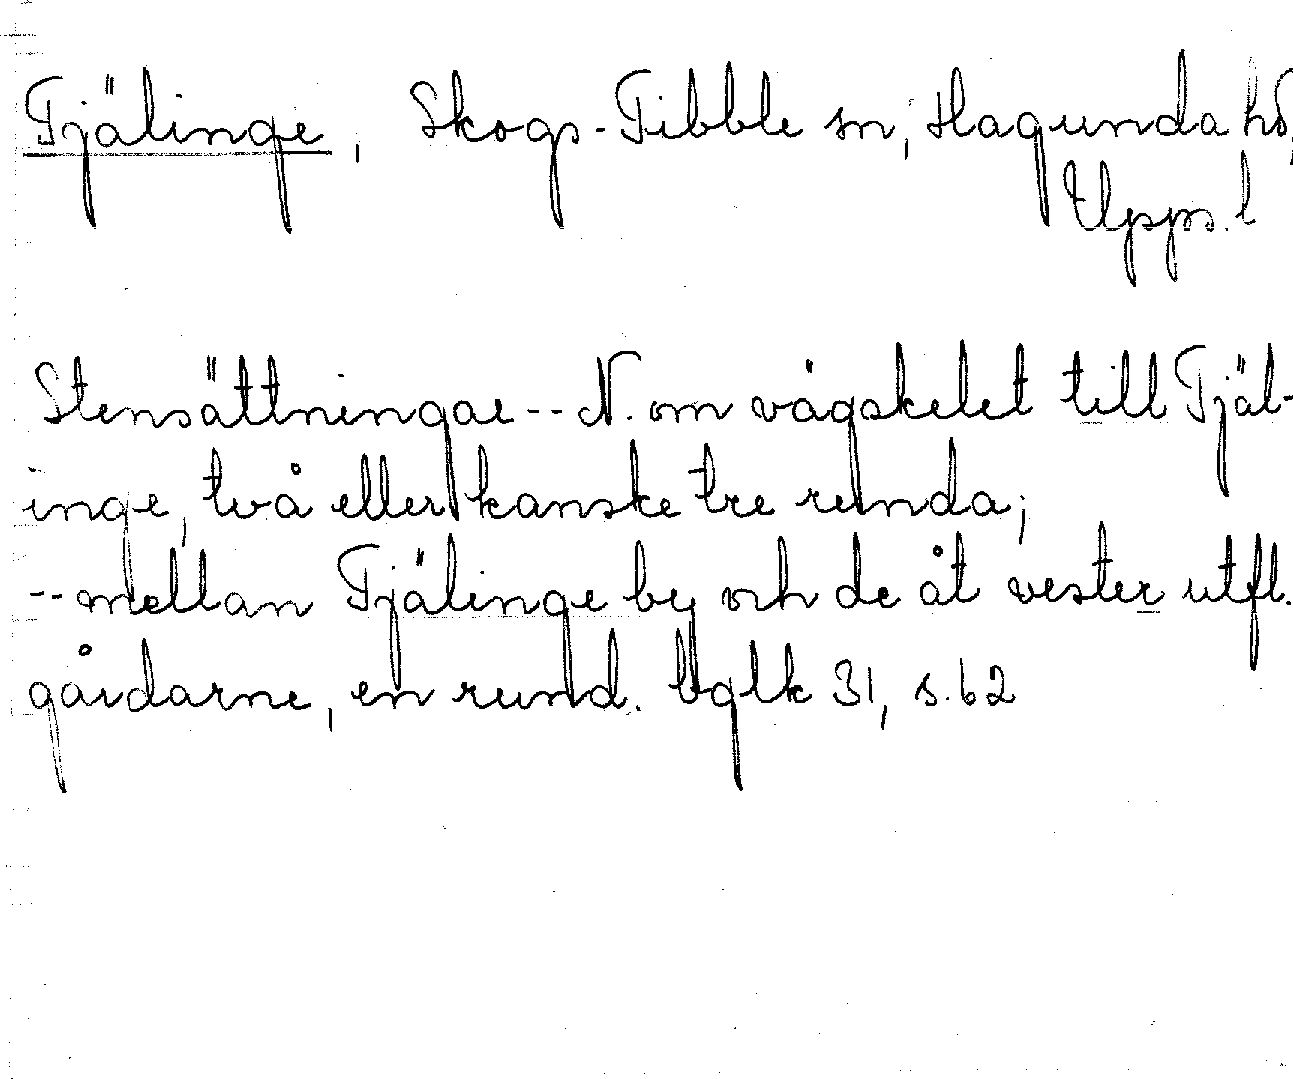 Tjälinge, Skogs-Tibble sn, Hagunda hd,
Upps. l
Stensättningar -- N. om vägskelet till Tjäl-
inge, två eller kanske tre runda;
-- mellan Tjälinge by och de åt vester utfl.
gårdarne, en rund. bglk 31, s. 62